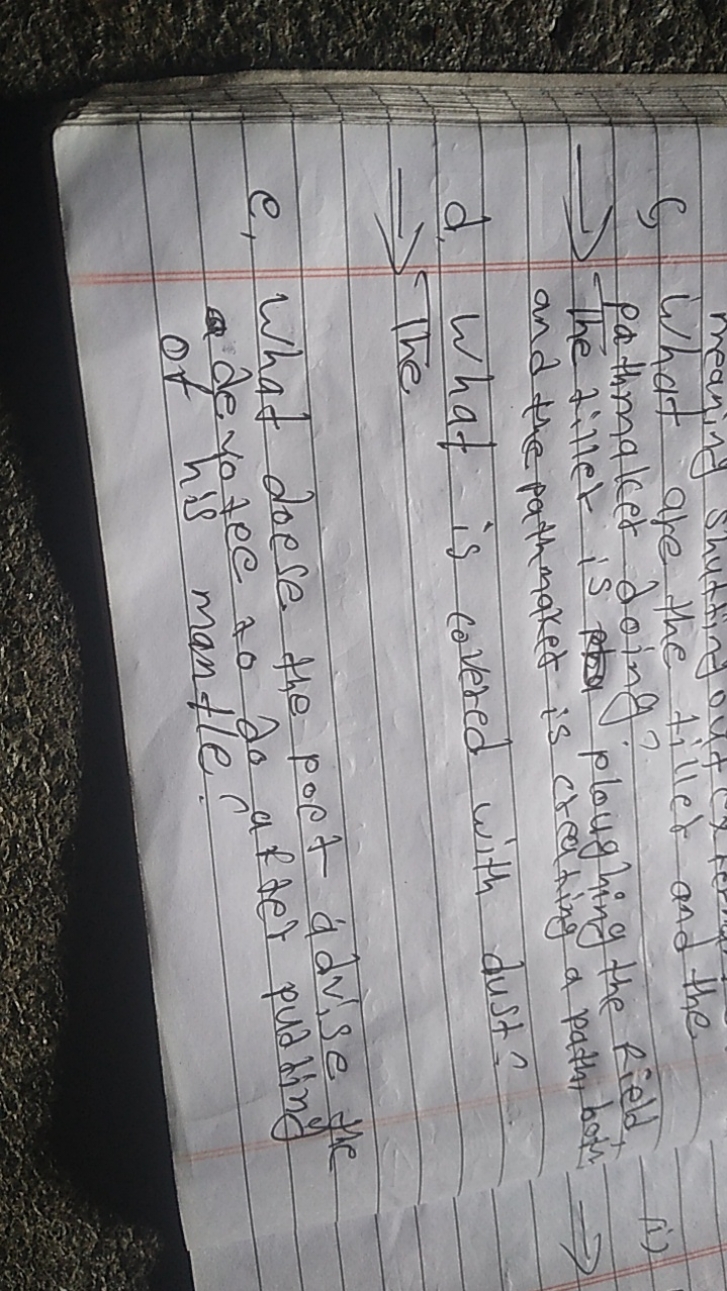 meaning shutting out
c, What are the tiller and the
pathmaker doing?
→ The tiller is ploughing the field,
and the pathmaker is creating a path, both
d. What is covered with dust?
→ The
e, What doese the poet advise the
devotee to do after putting
of his mantle?
(i)
→